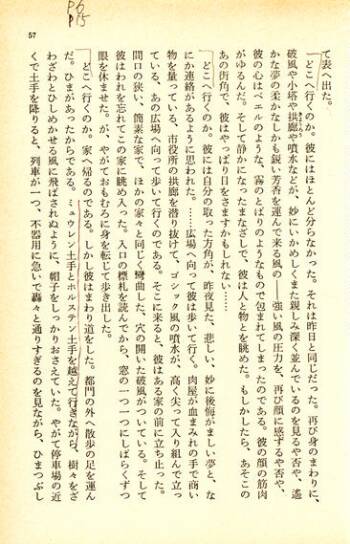 P6
P15
57
て表へ出た。
「どこへ行くのか。彼にはほとんど分らなかった。それは昨日と同じだった。再び身のまわりに、
破風や小塔や拱廊や噴水などが、妙にいかめしくまた親しみ深く並んでいるのを見るや否や、遙
かな夢の柔かなしかも鋭い芳香を運んで来る風の――強い風の圧力を、再び顔に感ずるや否や、
彼の心はベエルのような、霧のとばりのようなもので包まれてしまったのである。彼の顔の筋肉
がゆるんだ。そして静かになったまなざしで、彼は人と物とを眺めた。もしかしたら、あそこの
あの街角で、彼はやっぱり目をさますかもしれない……
どこへ行くのか。彼には自分の取った方角が、昨夜見た、悲しい、妙に後悔がましい夢と、な
にか連絡があるように思われた。……広場へ向って彼は歩いて行く。肉屋が血まみれの手で商い
物を量っている、市役所の拱廊を潜り抜けて、ゴシック風の噴水が、高く尖って入り組んで立っ
ている、あの広場へ向って歩いて行くのである。そこに来ると、彼はある家の前に立ち止った。
間口の狭い、簡素な家で、ほかの家々と同じく彎曲した、穴の開いた破風がついている。そして
彼はわれを忘れてこの家に眺め入った。入口の標札を読んでから、窓の一つ一つにしばらくずつ
眼を休ませた。が、やがておもむろに身を転じて歩き出した。
どこへ行くのか。家へ帰るのである。しかし彼はまわり道をした。都門の外へ散歩の足を運ん
だ。ひまがあったからである。ミュウレン土手とホルステン土手を越えて行きながら、樹々をざ
わざわとひしめかせる風に飛ばされぬように、帽子をしっかりおさえていた。やがて停車場の近
くで土手を降りると、列車が一つ、不器用に急いで轟々と通りすぎるのを見ながら、ひまつぶし